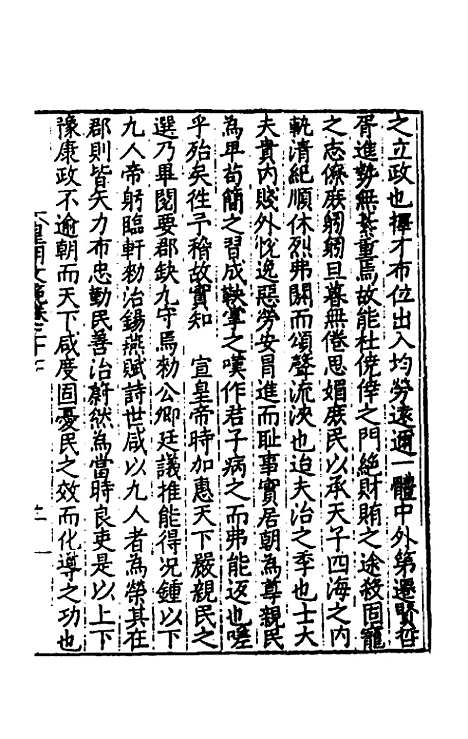 之立政也擇才布位出入均勞遠邇一體中外第遷賢哲
胥進勢無紊重焉故能杜僥倖之門絶財賄之途殺固寵
之志僚庶躬躬旦暮無倦思媚庶民以承天子四海之内
軌清紀順休烈弗闕而頌聲流泱也迨夫治之季也士大
夫貴内賤外忱逸惡勞安冒進而耻事實居朝為尊親民
為卑苟簡之習成鞅掌之嘆作君子病之而弗能返也嗟
乎殆矣徃予稽故實知 宣皇帝時加惠天下嚴親民之
選乃畢閲要郡缺九守焉勑公卿廷議推能得况鍾以下
九人帝躬臨軒勑治錫燕賦詩世咸以九人者為榮其在
郡則皆矢力布忠勤民善治蔚然為當時良吏是以上下
豫康政不逾朝而天下咸度固憂民之效而化導之功也
皇明文範卷二十七